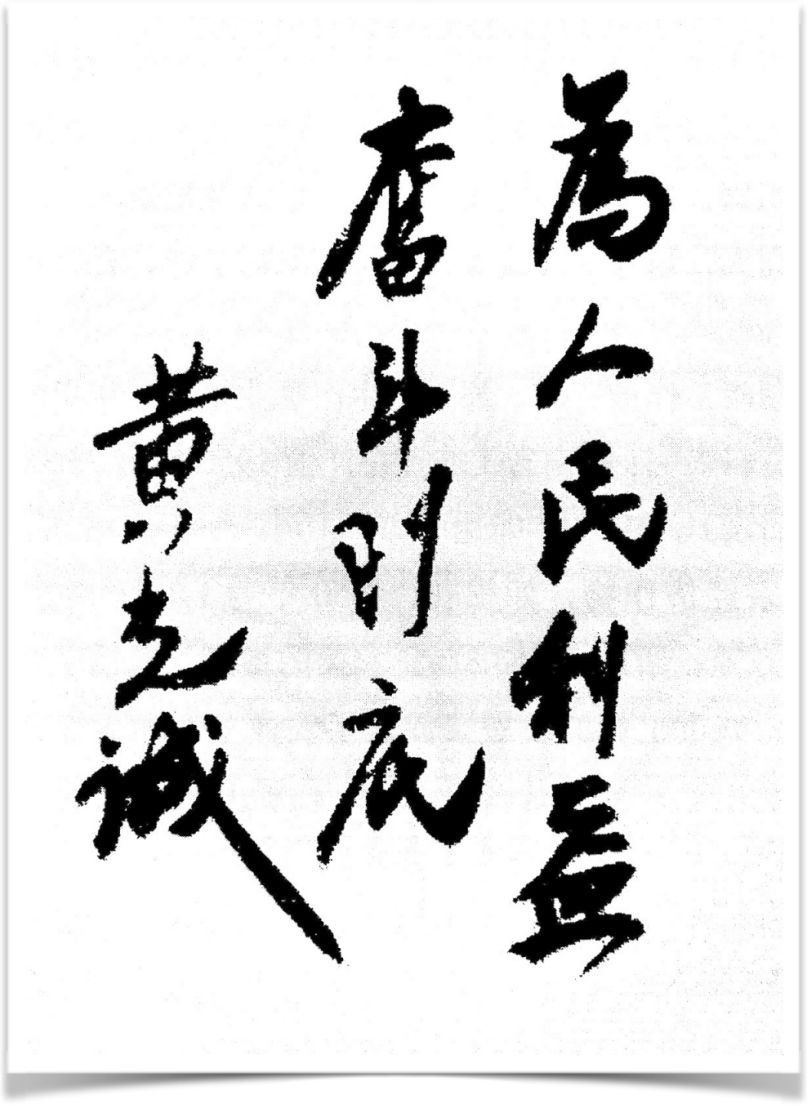 為人民利益
奮斗到底
黄克诚